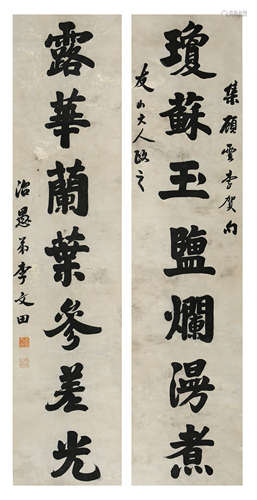 集顧雲李賀句
瓊蘇玉鹽爛漫煮
友山大人政之
露華蘭葉參差光
治愚弟李文田